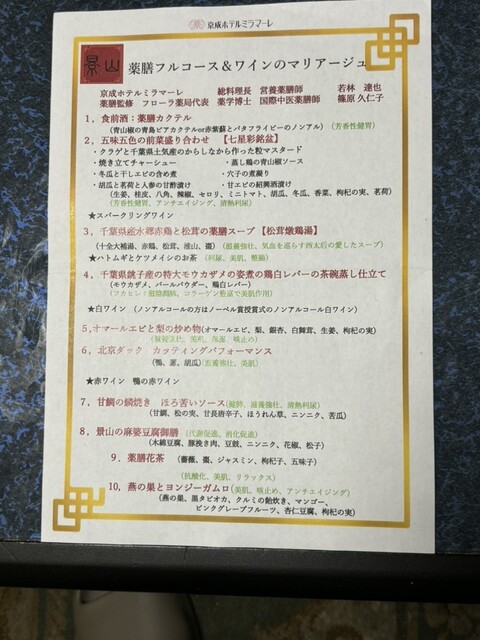 京成ホテルミラマーレ
景山
薬膳フルコース＆ワインのマリアージュ
京成ホテルミラマーレ　総料理長　営養薬膳師　若林　達也
薬膳監修　フローラ薬局代表　薬学博士　国際中医薬膳師　篠原 久仁子
1，食前酒：薬膳カクテル
（青山椒の青島ビアカクテルor赤紫蘇とバタフライピーのノンアル）（芳香性健胃）
2，五味五色の前菜盛り合わせ　【七星彩銘盆】
・クラゲと千葉県土気産のからしなから作った粒マスタード
・焼き立てチャーシュー　・蒸し鶏の青山椒ソース
・冬瓜と干しエビの含め煮　・穴子の煮凝り
・胡瓜と茗荷と人参の甘酢漬け　・甘エビの紹興酒漬け
（生姜、桂皮、八角、辣椒、セロリ、ミニトマト、胡瓜、冬瓜、香菜、枸杞の実、茗荷）
（芳香性健胃、アンチエイジング、清熱利尿）
★スパークリングワイン
3，千葉県産水郷赤鶏と松茸の薬膳スープ【松茸燉鶏湯】
（十全大補湯、赤鶏、松茸、淮山、棗）（滋養強壮、気血を巡らす西太后の愛したスープ）
★ハトムギとケツメイシのお茶　（利尿、美肌、整腸）
4，千葉県銚子産の特大モウカザメの姿煮の鶏白レバーの茶碗蒸し仕立て
（モウカザメ、パールパウダー、鶏白レバー）
（フカヒレ：滋陰潤肺、コラーゲン豊富で美肌作用）
★白ワイン　（ノンアルコールの方はノーベル賞授賞式のノンアルコール白ワイン）
5,オマールエビと梨の炒め物(オマールエビ、梨、銀杏、白舞茸、生姜、枸杞の実)
（滋養強壮、美肌、保湿、咳止め）
6，北京ダック　カッティングパフォーマンス
（鴨、葱、胡瓜）（滋養強壮、美肌）
★赤ワイン　鴨の赤ワイン
7，甘鯛の鱗焼き　ほろ苦いソース（健幹、滋養強壮、清熱利尿）
（甘鯛、松の実、甘長唐辛子、ほうれん草、ニンニク、苦瓜）
8，景山の麻婆豆腐御膳　（代謝促進、消化促進）
（木綿豆腐、豚挽き肉、豆豉、ニンニク、花椒、松子）
9，薬膳花茶　（薔薇、棗、ジャスミン、枸杞子、五味子）
（抗酸化、美肌、リラックス）
10，燕の巣とヨンジーガムロ（美肌、咳止め、アンチエイジング）
（燕の巣、黒タピオカ、クルミの飴炊き、マンゴー、
ピンクグレープフルーツ、杏仁豆腐、枸杞の実）